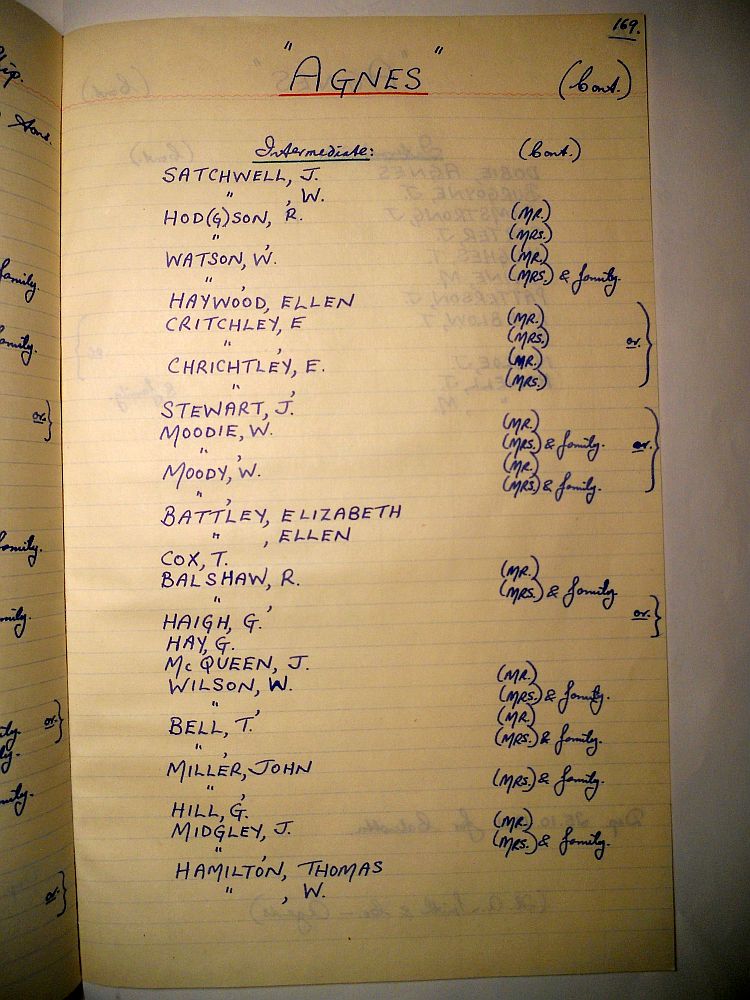 169.
"AGNES" (Cont.)
Intermediate: (Cont.)
SATCHWELL, J.
" , W.
HOD(G)SON, R. (MR.)
" , (MRS.)
WATSON, W. (MR.)
" , (MRS.) & family.
HAYWOOD, ELLEN
CRITCHLEY, E (MR.)
" , (MRS.) or.
CHRICHTLEY, E. (MR.)
" , (MRS.)
STEWART, J.
MOODIE, W. (MR.)
" , (MRS.) & family. or.
MOODY, W. (MR.)
" , (MRS.) & family.
BATTLEY, ELIZABETH
" , ELLEN
COX, T.
BALSHAW, R. (MR.)
" , (MRS.) & family.
HAIGH, G. or.
HAY, G.
McQUEEN, J.
WILSON, W. (MR.)
" , (MRS.) & family.
BELL, T. (MR.)
" , (MRS.) & family.
MILLER, JOHN
" , (MRS.) & family.
HILL, G.
MIDGLEY, J. (MR.)
" , (MRS.) & family.
HAMILTON, THOMAS
" , W.